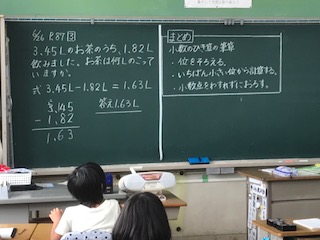 5/26 P.87 団
3.45Lのお茶のうち、1.82L
飲みました。お茶は何Lのこって
いますか。
式 3.45L-1.82L=1.63L
3.45
-1.82
1.63
答え1.63L
まとめ
小数のひき算の筆算
・位をそろえる。
・いちばん小さい位から計算する。
・小数点をわすれずにおろす。